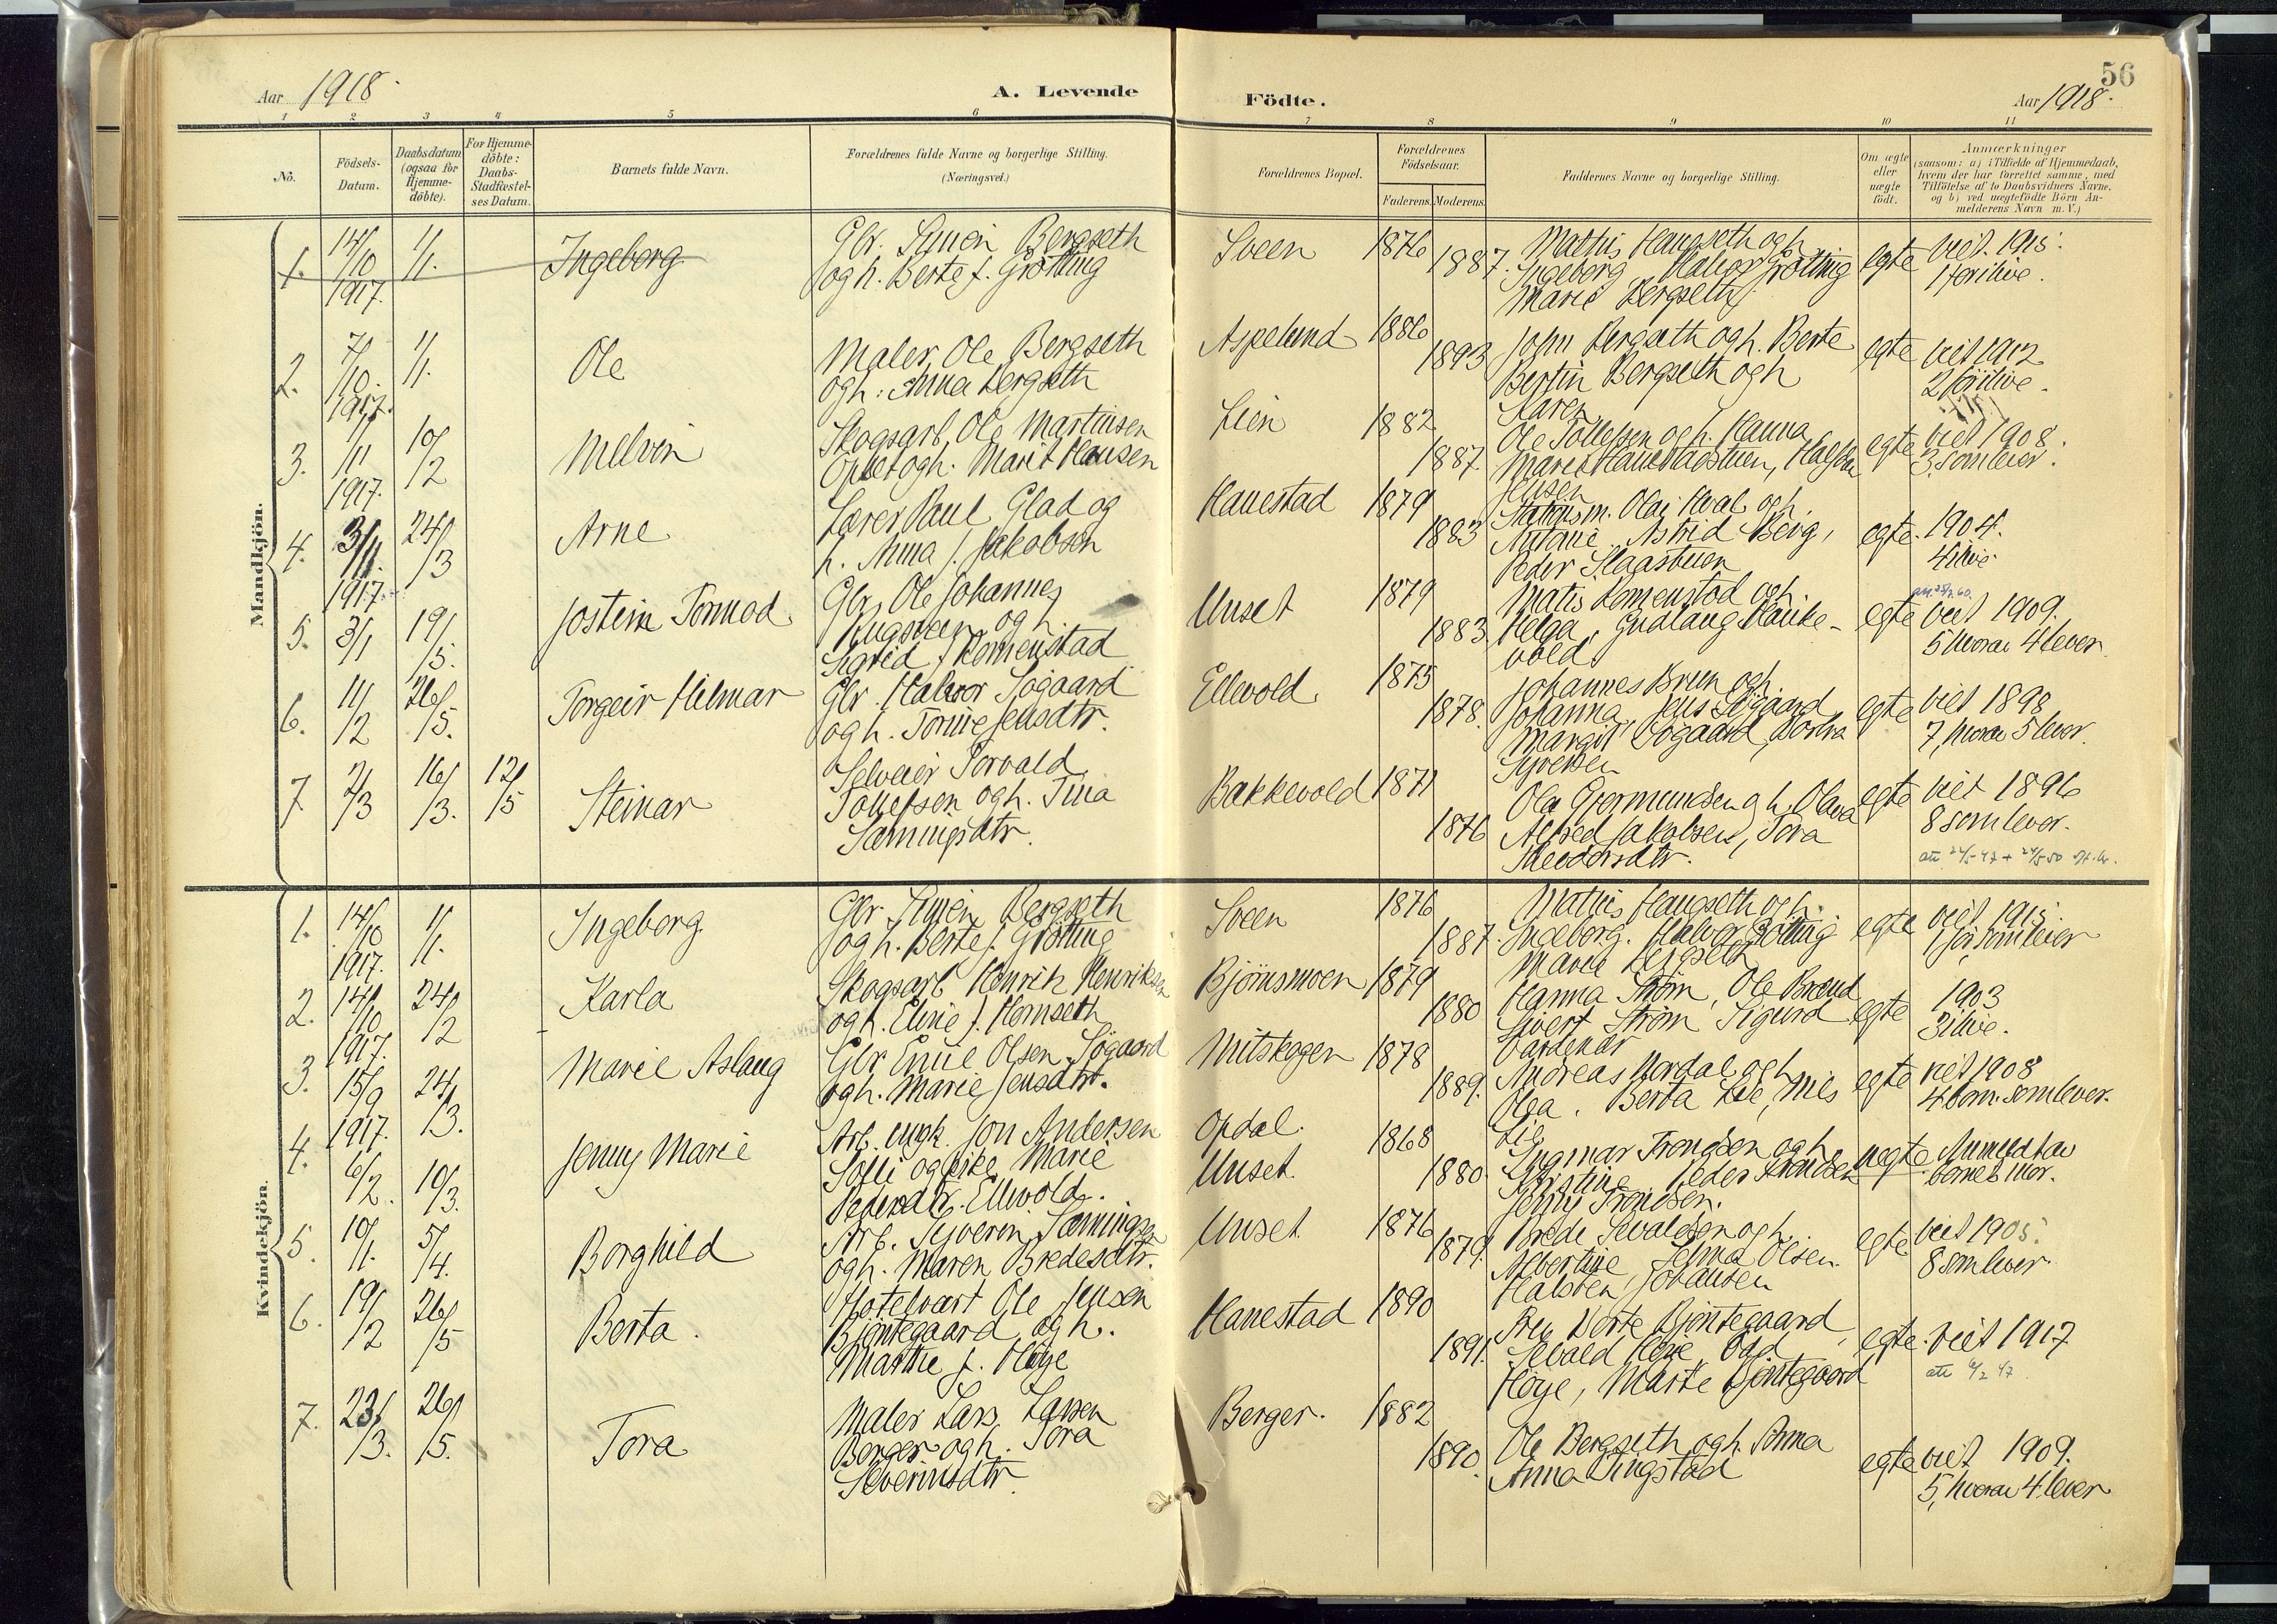 56
Aar 1918.
A. Levende
Födte.
Aar 1918.
1 2 3 4 5 6 7 8 9 10 11
No.
Födsels-Datum.
Daabsdatum (ogsaa for Hjemme-döbte).
For Hjemme-döbte: Daabs-Stadfæstel-ses Datum.
Barnets fulde Navn.
Forældrenes fulde Navne og borgerlige Stilling.
(Næringsvei.)
Forældrenes Bopæl.
Forældrenes Födselsaar.
Faderens. Moderens.
Faddernes Navne og borgerlige Stilling.
Om ægte eller uægte födt.
Anmærkninger
(saasom: a) i Tilfælde af Hjemmedaab,
hvem der har forrettet samme, med
Tilföielse af to Daabsvidners Navne,
og b) ved uægtefödte Börn An-
melderens Navn m. V.)
Mandkjön.
1. 14/10 1917. 1/1. Ingeborg
Gbr. Simen Bergseth
og h. Berte f. Grötting
Sveen 1876 1887.
Mathis Haugseth og h.
Ingeborg Halvor Grötting
Marie Bergseth
egte viet. 1915.
1 før i live.
2. 7/10. 1917. 1/1. Ole
Maler Ole Bergseth
og h: Anna Bergseth
Aspelund 1886 1893
John Bergseth og h. Berte
Bertin Bergseth og h
Karen
egte viet 1912
2 för i live.
3. 1/11 1917. 10/2 Melvin
Skogsarb. Ole Martinsen
og h. Marit Hansen
Lien 1882 1887.
Ole Tollefsen og h. Hanna
Jensen
egte viet 1908.
3 som lever.
4. 3/11. 1917. 24/3 Arne
Lærer Paul Glad og
h. Anna f. Jakobsen
Hanestad 1879 1883
Stationsm. Olaj Hval og h.
Antonie Astrid Berg,
Peder Slaastuen
egte. 1904.
4 i live.
5. 3/1 19/5. Jostein Tormod
Gbr. Ole Johannes
og h.
Sigrid f. Komenstad
Unset 1879 1883
Matis Komenstad og h.
Helga, Gudlaug Hauke-
vold
egte viet 1909.
5 hvorav 4 lever.
6. 11/2 26/5. Torgeir Hilmar
Gbr. Halvor Sögaard
og h. Tomine Jensdtr.
Ellevold. 1875 1878.
Johannes Brun og h.
Johanna, Jens Sögaard
Margit Sögaard, Borka
Syversen
egte viet 1898
7, hvorav 5 lever.
7. 2/3 16/3. 12/5 Steinar
Selveier Torvald
Tollefsen og h. Tina
Sæmingsdtr.
Bakkevold 1871 1876
Ola Gjermundsen og h. Olava
Alfred Jakobsen, Tora
Theodorsdtr.
egte viet 1896
8 som lever.
Kvindekjön.
1. 14/10 1917. 1/1. Ingeborg
Gbr Simen Bergseth
og h. Berte f. Grötting
Sveen 1876 1887.
Mathis Haugseth og h.
Ingeborg. Halvor Grötting
Marie Bergseth
egte viet 1915.
1 før, som lever
2. 14/10 1917. 24/2 Karla
Skogsarb. Henrik Henriksen
og h. Eline f. Hornseth
Bjömsmoen 1879 1880
Hanna Ström, Ole Brænd
Sivert Ström Sigurd
Vardenær
egte 1903
3 i live.
3. 15/9 1917. 24/3. Marie Aslaug
Gbr Emil Olsen Sögaard
og h. Marie Jensdtr.
Mitskogen 1878 1889.
Andreas Nordal og h
Olga. Berta Lie, Nils
Lie
egte viet 1908
4 barn. som lever.
4. 6/2. 10/3. Jenny Marie
Arb. ungk. Jon Andersen
Solli og pike Marie
Pedersdtr. Ellevold.
Opdal. 1868
Unset. 1880.
Ingmar Trondsen og h.
Kristine, Peder Trondsen
Jenny Trondsen.
uegte Anmeldt av
barnets mor.
5. 10/1. 5/4. Borghild
Arb. Syverin Sæmingsen
og h. Maren Bredesdtr.
Unset. 1876 1879.
Brede Sevaldsen og h.
Albertine, Selma Olsen.
Halsten Johansen
egte viet 1905.
8 som lever.
6. 19/2 26/5 Berta.
Hotelvært Ole Jensen
Bjöntegaard og h.
Marthe f. Höye
Hanestad 1890 1891.
Fru Berte Bjöntegaard,
Sevald Höye, Odd
Höye, Marte Bjöntegaard
egte. viet 1917
7. 23/3. 26/5. Tora
Maler Lars Larsen
Berger og h. Tora
Severinsdtr.
Berger. 1882 1890.
Ole Bergseth og h. Anna
Anna Tingstad
egte viet 1909.
5, hvorav 4 lever